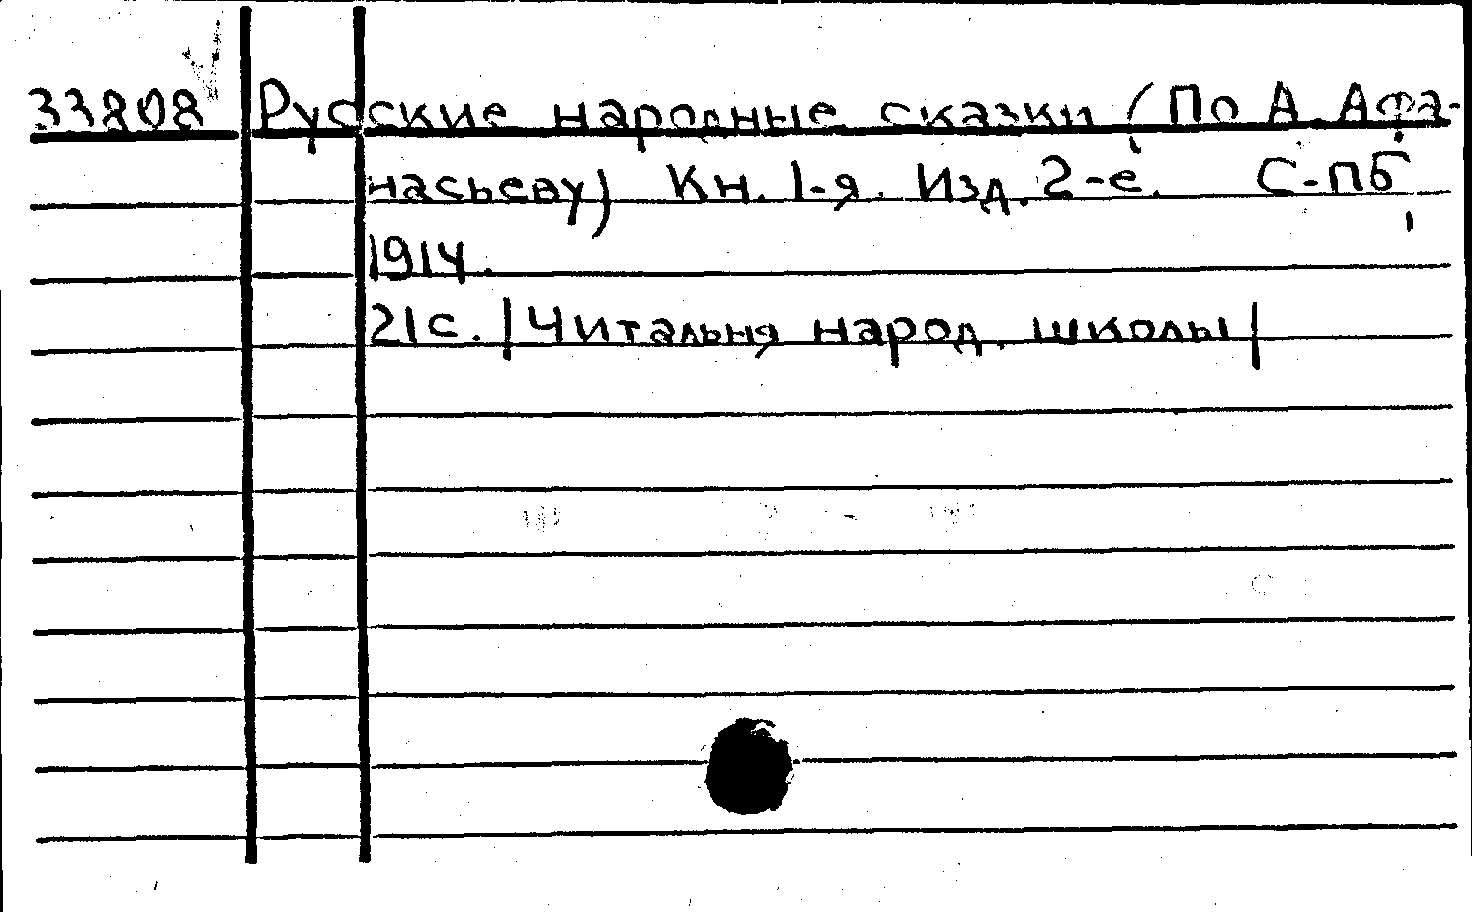 33808 Русские народные сказки (По А. Афа-
насьеву) Кн. 1-я. Изд. 2-е. С-ПБ,
1914.
21с. |Читальня народ. школы|